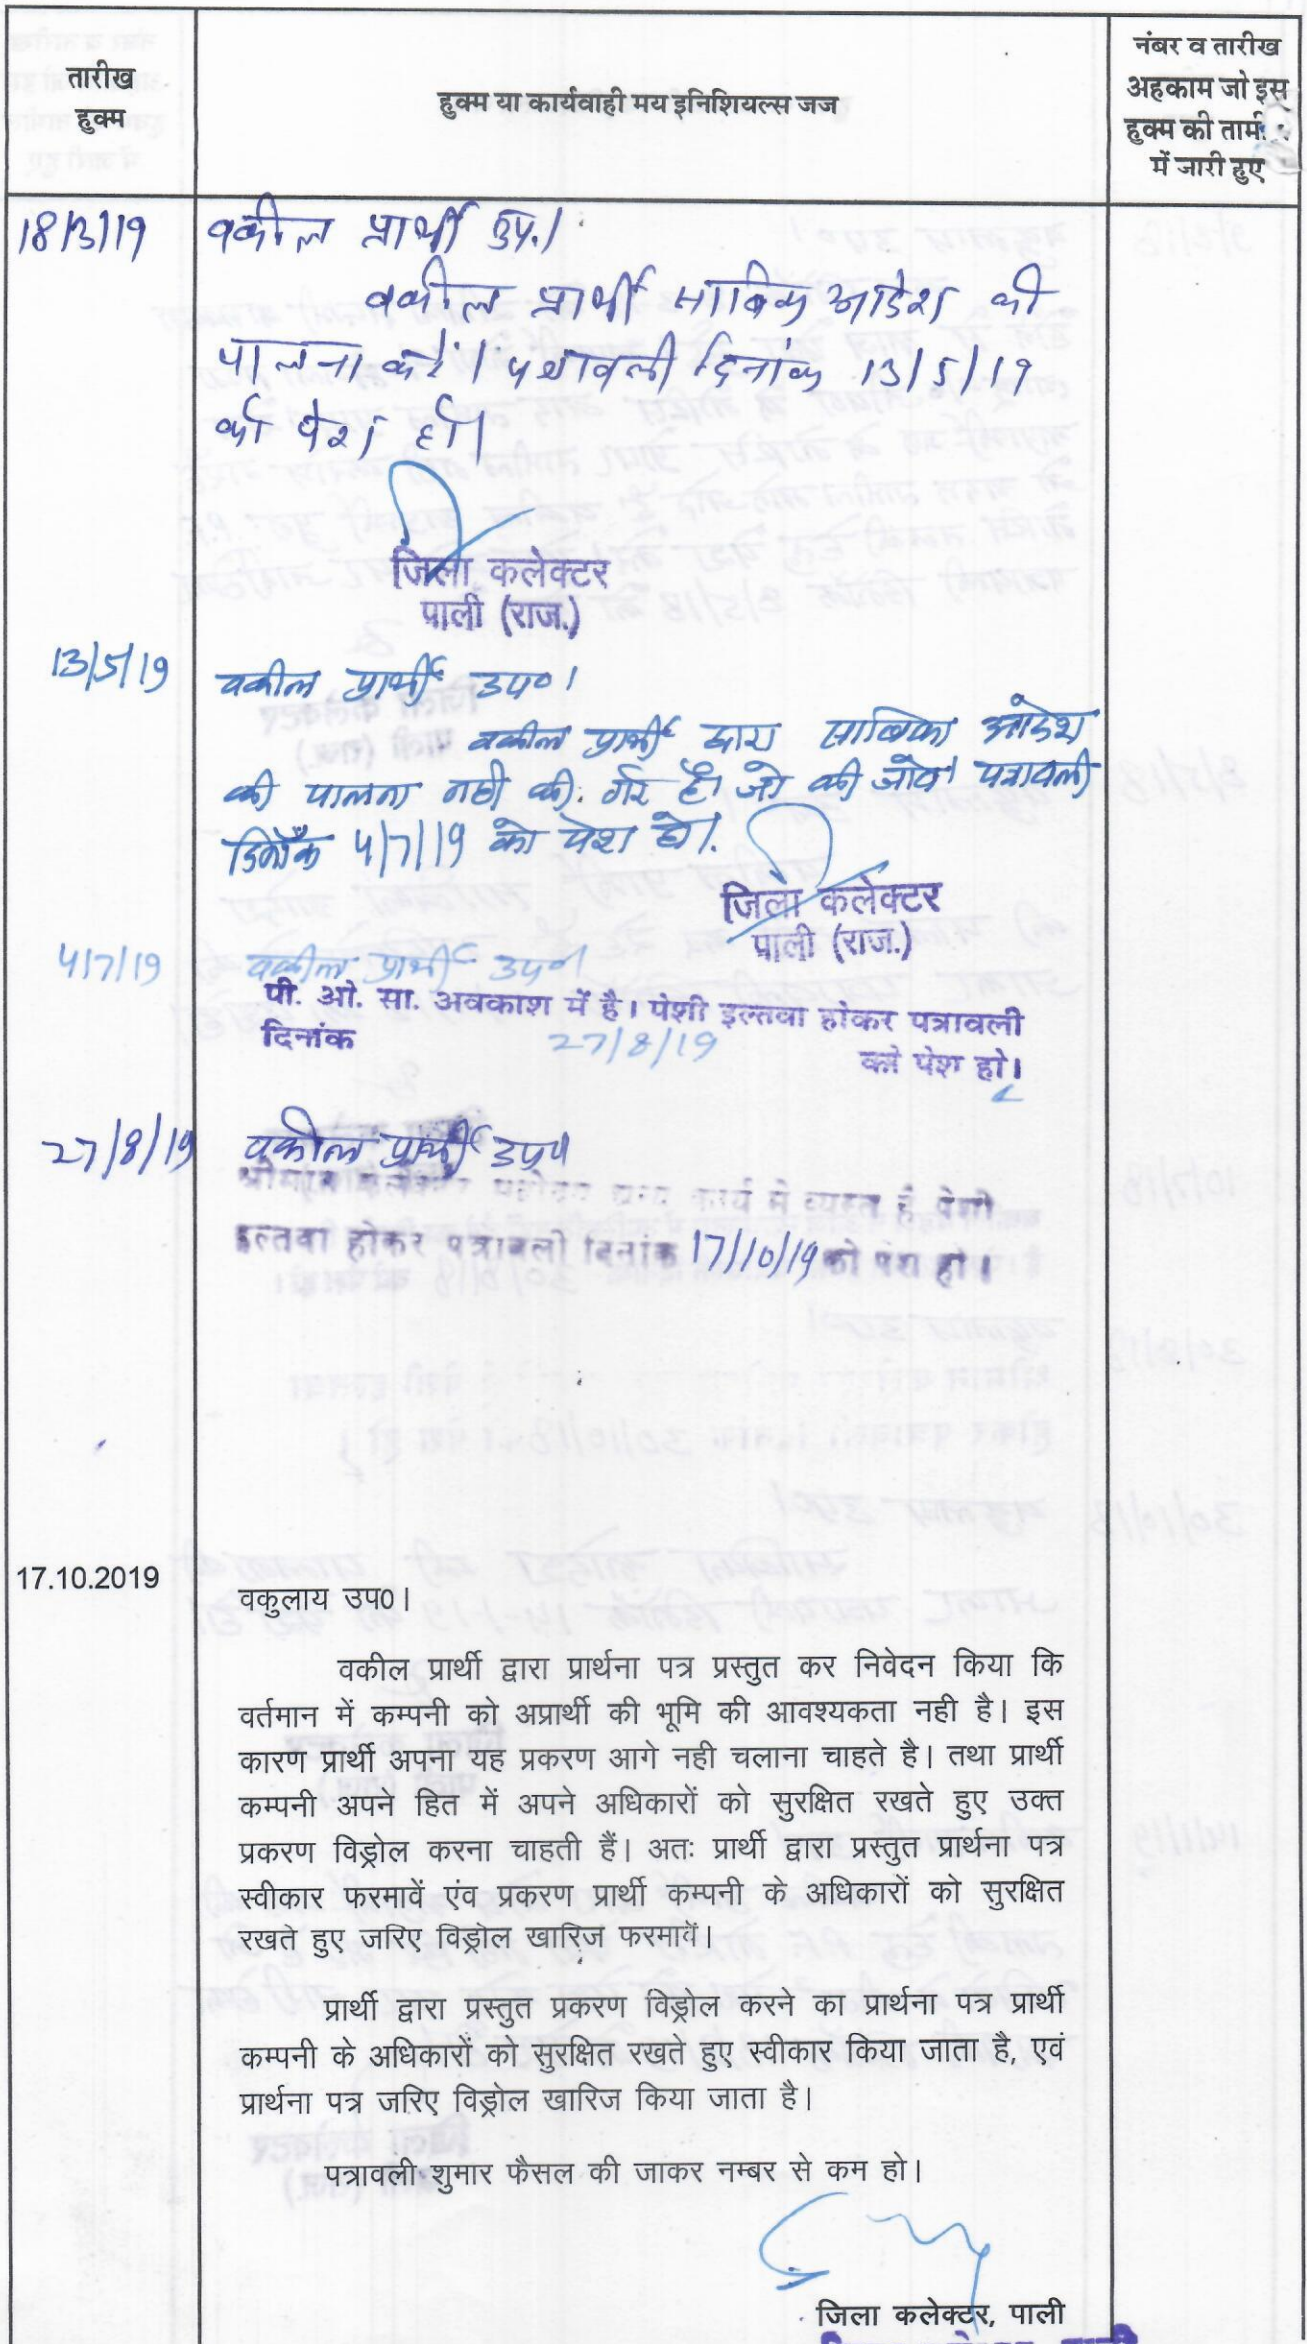 तारीख
हुक्म
हुक्म या कार्यवाही मय इनिशियल्स जज
नंबर व तारीख
अहकाम जो इस
हुक्म की तामी
में जारी हुए
18/3/19
वकील प्रार्थी उप.।
वकील प्रार्थी साबिक आदेश की
पालना करें। पत्रावली दिनांक 13/5/19
को पेश हो।
जिला कलेक्टर
पाली (राज.)
13/5/19
वकील प्रार्थी उप०।
वकील प्रार्थी द्वारा साबिका आदेश
की पालना नही की गई है। जो की जावे। पत्रावली
दिनाँक 4/7/19 को पेश हो।
जिला कलेक्टर
पाली (राज.)
4/7/19
वकील प्रार्थी उप०।
पी. ओ. सा. अवकाश में है। पेशी इल्तवा होकर पत्रावली
दिनांक 27/8/19 को पेश हो।
27/8/19
वकील प्रार्थी उप०
श्रीमान कलेक्टर महोदय अन्य कार्य मे व्यस्त है पेशी
इल्तवा होकर पत्रावली दिनांक 17/10/19 को पेश हो।
17.10.2019
वकुलाय उप0।
वकील प्रार्थी द्वारा प्रार्थना पत्र प्रस्तुत कर निवेदन किया कि
वर्तमान में कम्पनी को अप्रार्थी की भूमि की आवश्यकता नही है। इस
कारण प्रार्थी अपना यह प्रकरण आगे नही चलाना चाहते है। तथा प्रार्थी
कम्पनी अपने हित में अपने अधिकारों को सुरक्षित रखते हुए उक्त
प्रकरण विड्रोल करना चाहती हैं। अतः प्रार्थी द्वारा प्रस्तुत प्रार्थना पत्र
स्वीकार फरमावें एंव प्रकरण प्रार्थी कम्पनी के अधिकारों को सुरक्षित
रखते हुए जरिए विड्रोल खारिज फरमावें।
प्रार्थी द्वारा प्रस्तुत प्रकरण विड्रोल करने का प्रार्थना पत्र प्रार्थी
कम्पनी के अधिकारों को सुरक्षित रखते हुए स्वीकार किया जाता है, एवं
प्रार्थना पत्र जरिए विड्रोल खारिज किया जाता है।
पत्रावली शुमार फैसल की जाकर नम्बर से कम हो।
जिला कलेक्टर, पाली